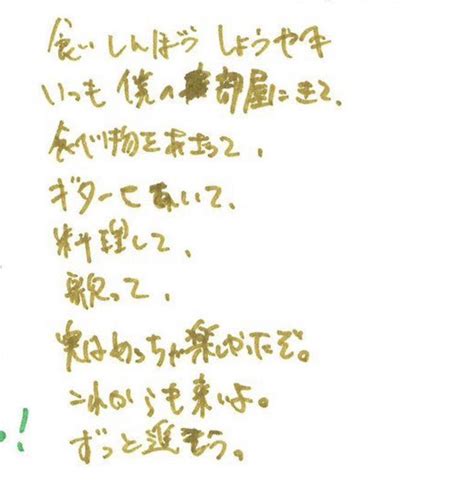 食いしんぼう しょうや
いつも僕の部屋にきて、
食べ物をあさって、
ギター いて、
料理して、
って、
実はめっちゃ楽しかったぞ。
これからも来いよ。
ずっと進もう。
!